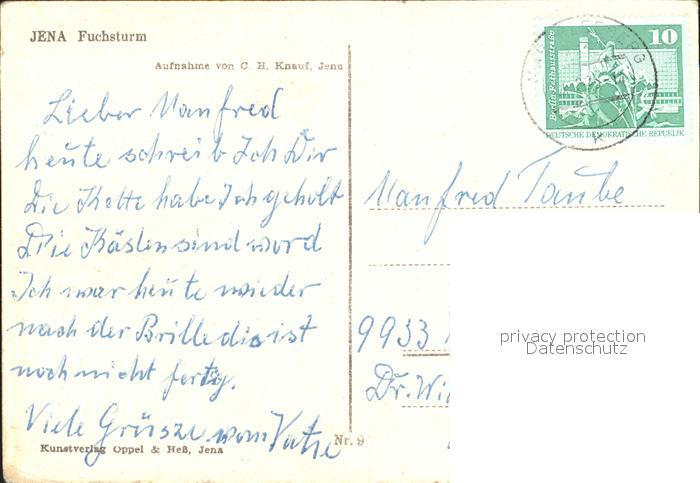 JENA Fuchsturm
Aufnahme von C. H. Knauf, Jena
Lieber Manfred
heute schreib Ich Dir
Die Kette habe Ich geholt
Die Kästen sind word
Ich war heute wieder
nach der Brille die ist
noch nicht fertig.
Viele Grüsze vom Vatre
Kunstverlag Oppel & Heß, Jena
Nr. 9
10
Berlin, Rathausstraße
DEUTSCHE DEMOKRATISCHE REPUBLIK
Manfred Taube
9933
Dr. Wi
privacy protection
Datenschutz